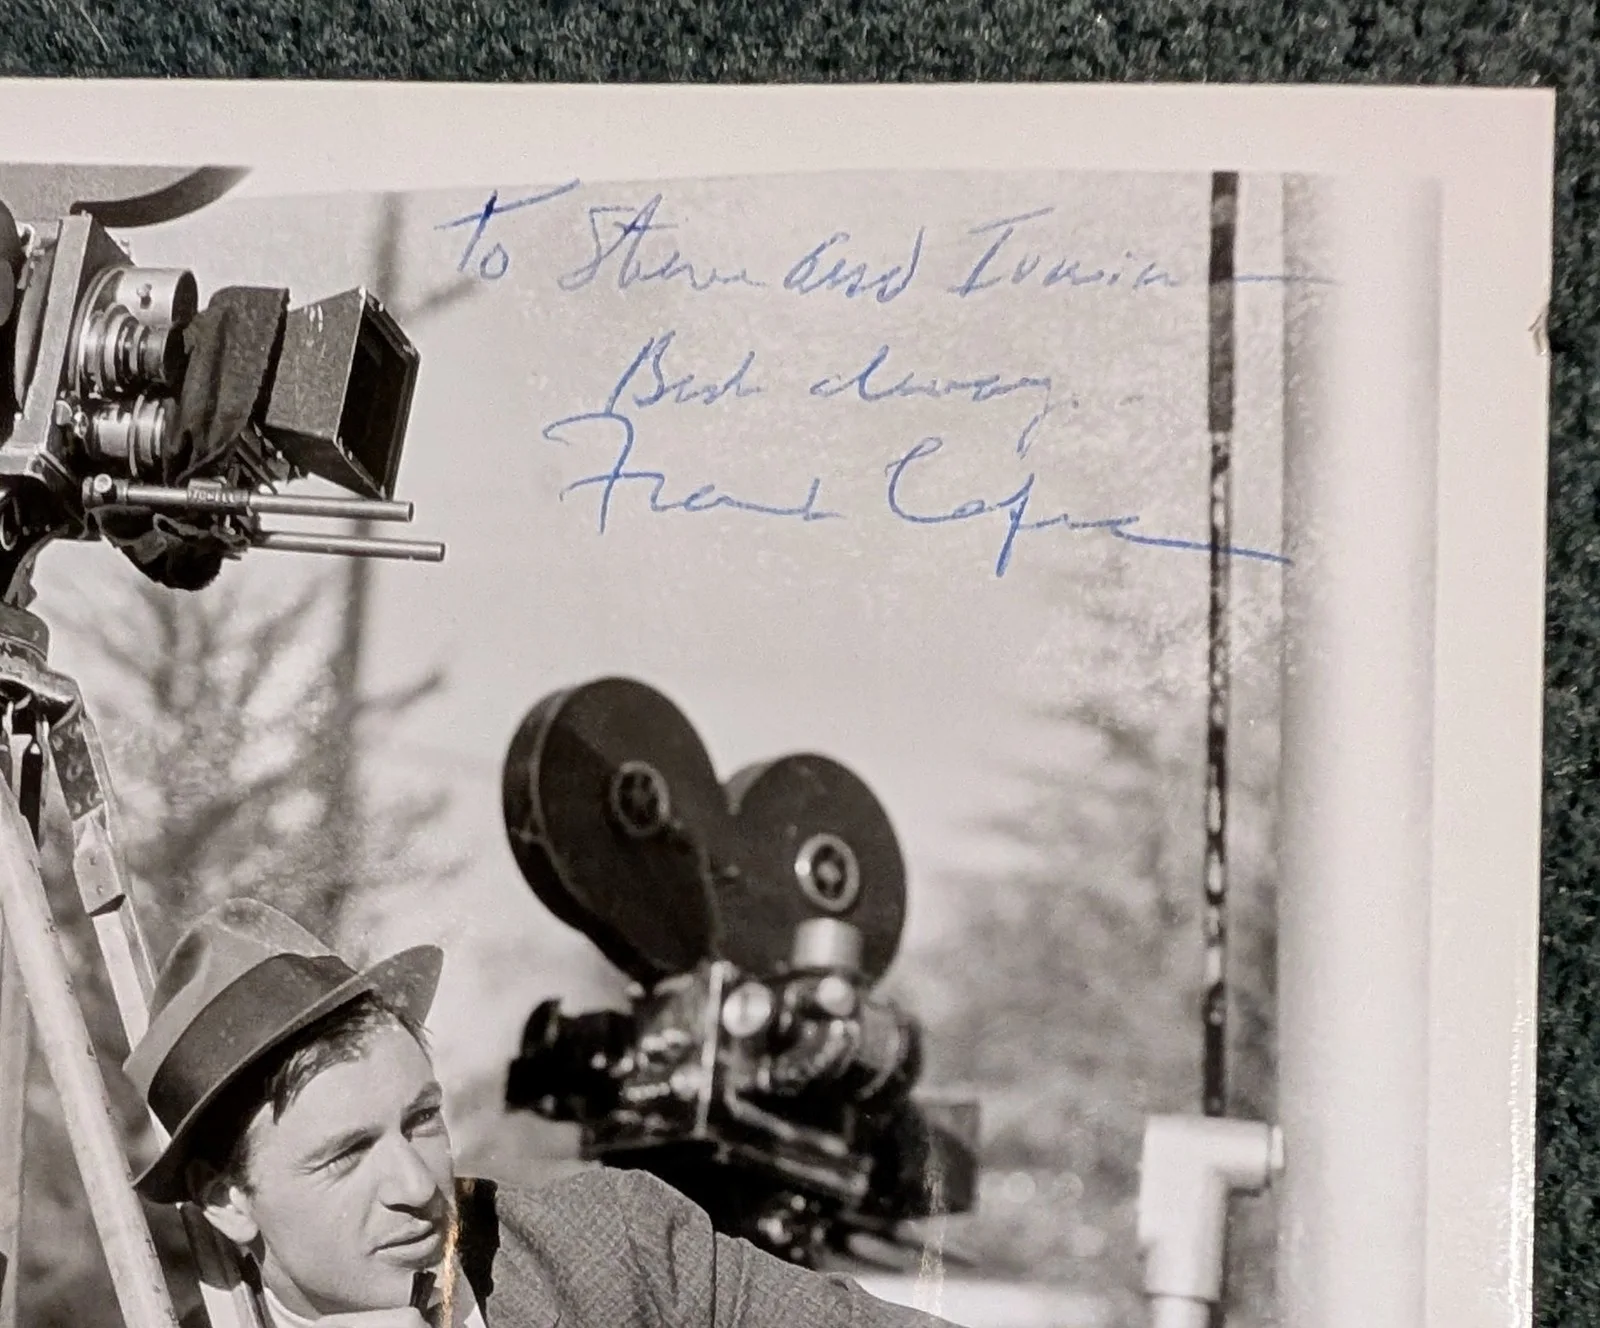 To Steve and Irwin
Best always
Frank Capra